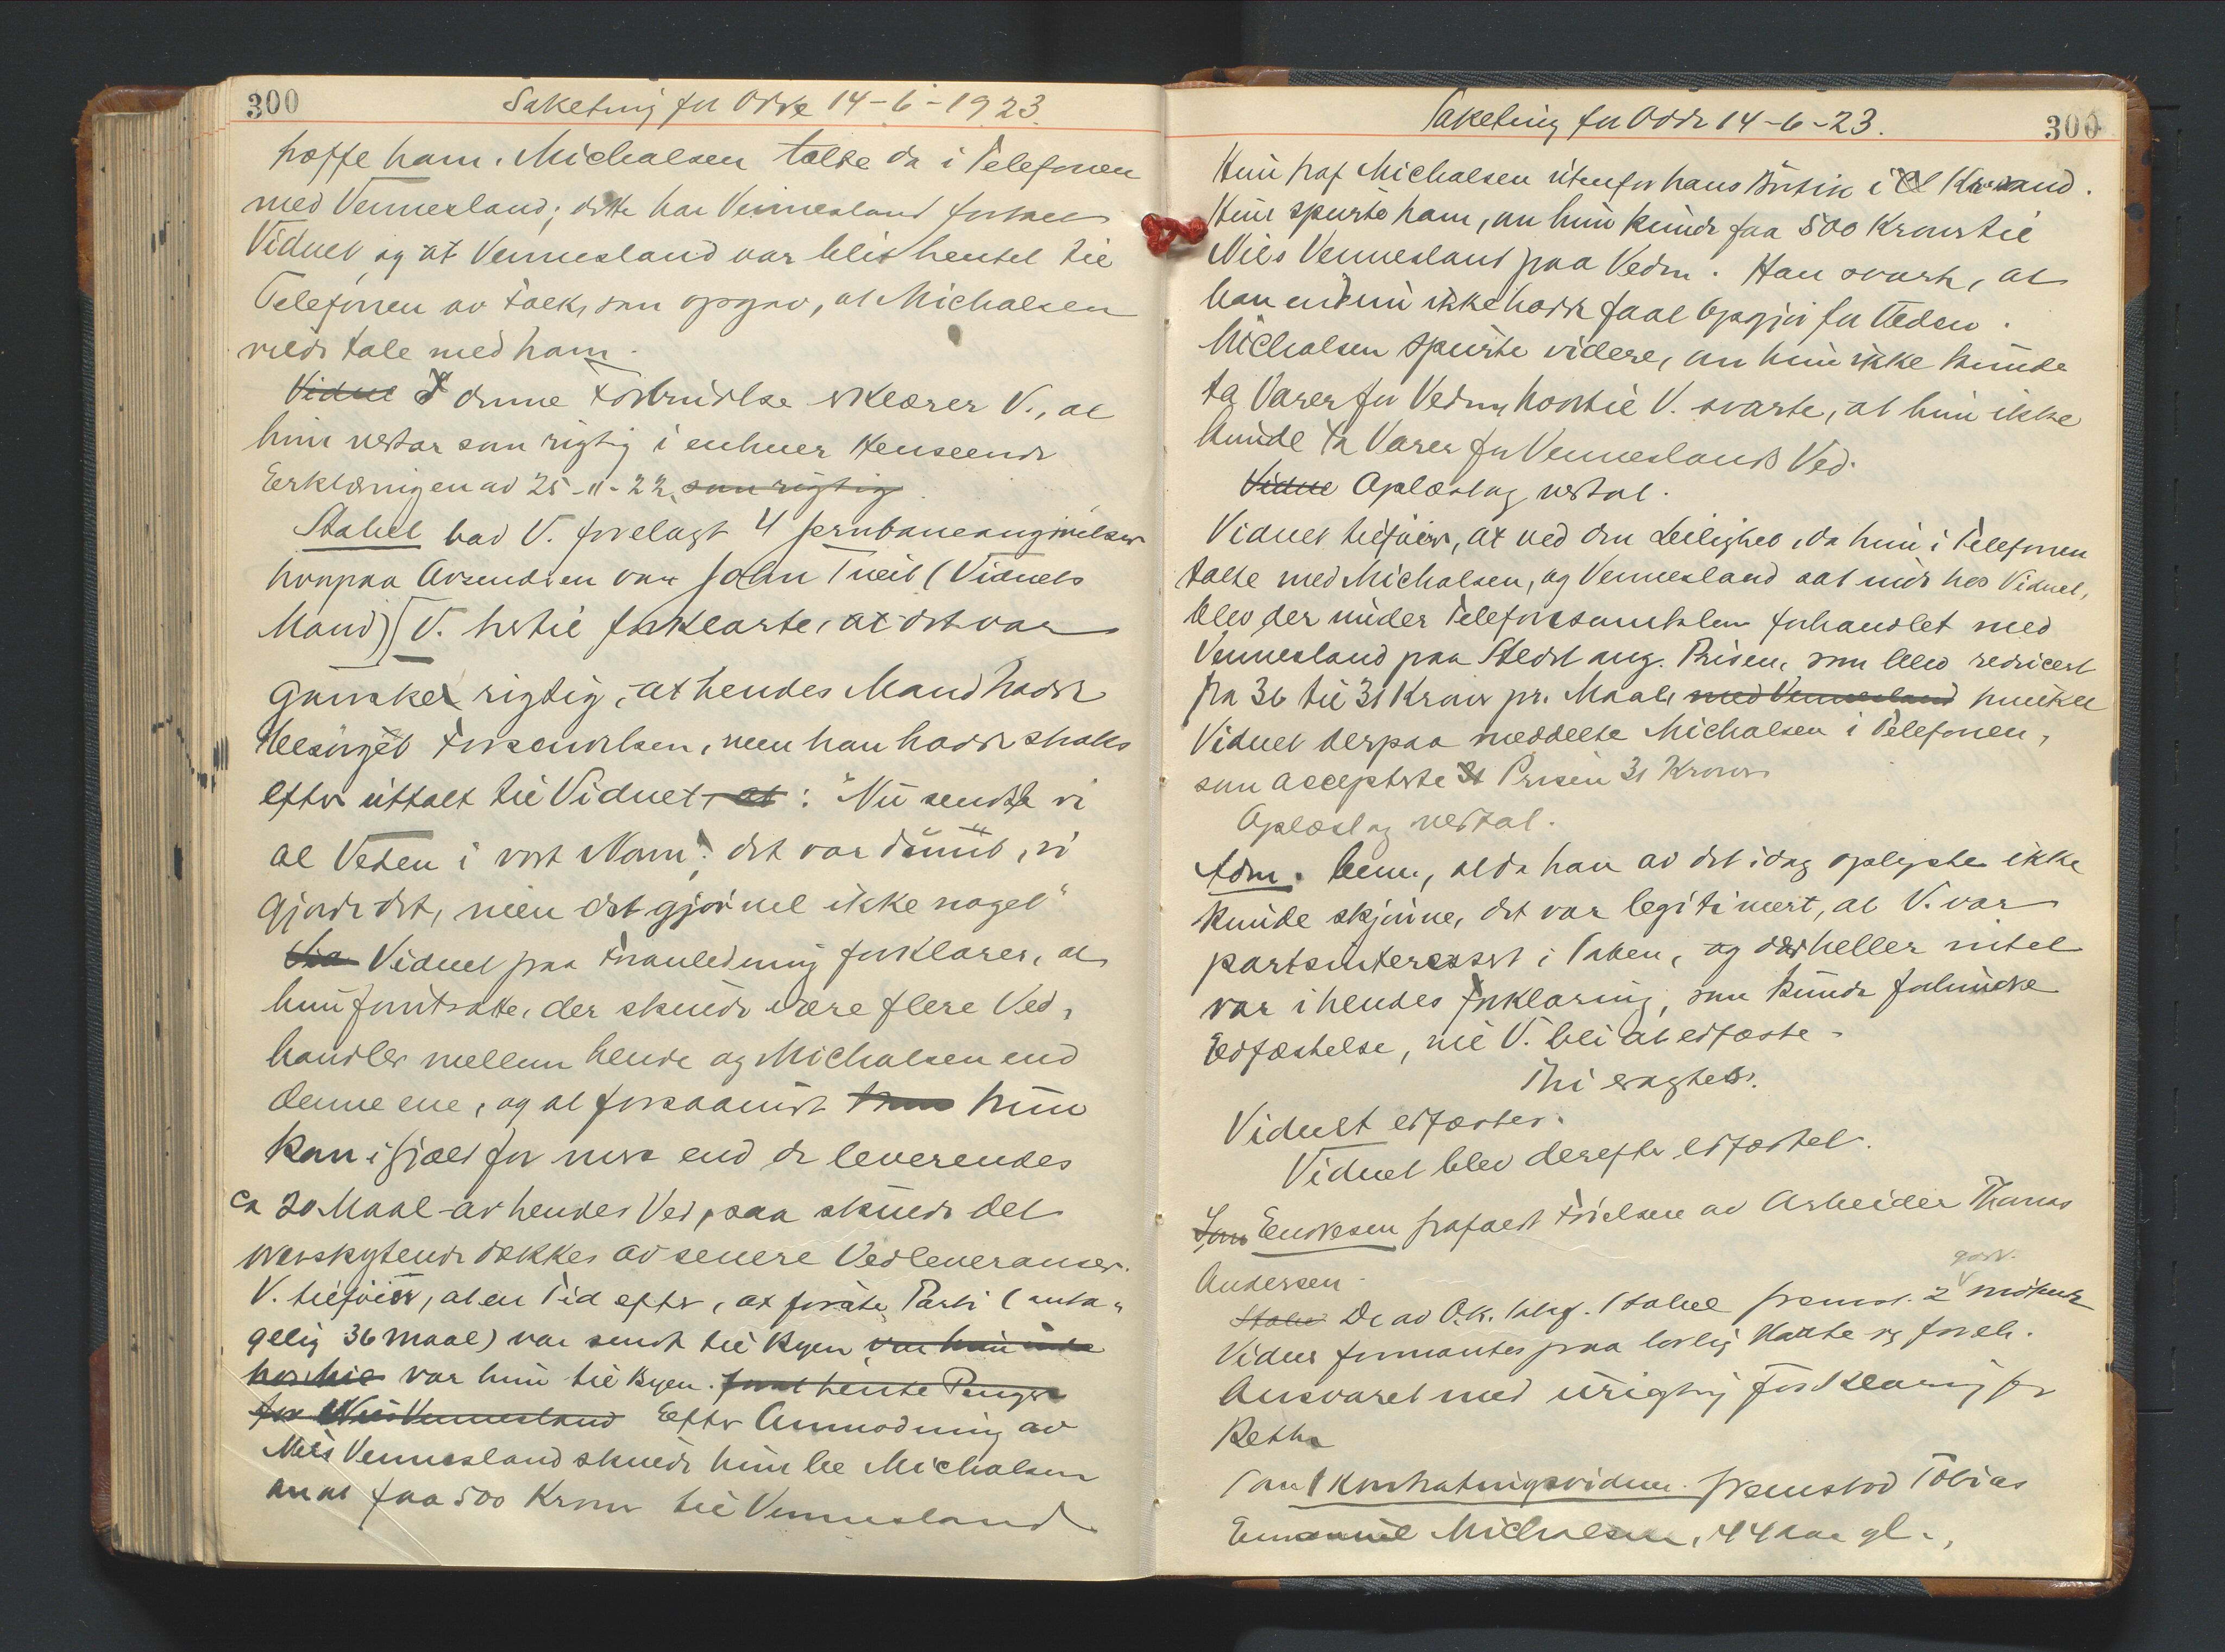 300
Saketing for Odde 14-6-1923.
træffe ham. Michalsen talte da i Telefonen
med Vennesland; dette har Vennesland fortalt
Vidnet og at Vennesland var blit hentet til
Telefonen av Folk, som opgav, at Michalsen
vilde tale med ham.
Vidnet I denne Forbindelse erklærer V., at
hun vedtar som rigtig i enhver Henseende
Erklæringen av 25-11-22, som rigtig
Stabel bad V. forelagt 4 Jernbaneangivelser
hvorpaa Avsenderen var John Tveit (Vidnets
Mand) V. hertil forklarte, at det var
ganske rigtig, at hendes Mand hadde
besørget Forsendelsen, men han hadde straks
efter uttalt til Vidnet, at: "Nu sendte vi
al Veden i vort Navn; det var dumt, vi
gjorde det, men det gjør vel ikke noget"
Vidnet paa Foranledning forklarer, at
hun forutsatte, der skulde være flere Ved-
handler mellem hende og Michalsen end
denne ene, og at forsaavidt hun
kom i Gjæld for mere end de leverendes
ca 20 Maal av hendes Ved, saa skulde det
overskytende dækkes av senere Vedleveranser.
V. tilføier, at en Tid efter, at første Parti (anta-
gelig 36 Maal) var sendt til Byen var hun
var hun til Byen. for at hente Penger
for Nils Vennesland Efter Anmodning av
Nils Vennesland skulde hun be Michalsen
om at faa 500 Kroner til Vennesland
Saketing for Odde 14-6-23.
300
Hun traf Michalsen utenfor hans Butik i Kr.sand.
Hun spurte ham, om hun kunde faa 500 Kroner til
Nils Vennesland paa Veden. Han svarte, at
han endnu ikke hadde faat Opgjør for Veden.
Michalsen spurte videre, om hun ikke kunde
ta Varer for Veden, hvortil V. svarte, at hun ikke
kunde ta Varer for Venneslands Ved.
Vidne Oplæst og vedtat.
Vidnet tilføier, at ved den Leilighed, da hun i Telefonen
talte med Michalsen, og Vennesland sat inde hos Vidnet,
blev der under Telefonsamtalen forhandlet med
Vennesland paa Stedet ang. Prisen, som blev reducert
fra 36 til 31 Kroner pr. Maal, med Vennesland hvilket
Vidnet derpaa meddelte Michalsen i Telefonen,
som accepterte Prisen 31 Kroner
Oplæst og vedtat.
Adm. bem., at da han av det idag oplyste ikke
kunde skjønne, det var legitimert, at V. var
partsinteressert i Saken, og der heller intet
var i hendes Forklaring, som kunde forhindre
Edfæstelse, vil V. bli at edfæste.
Thi eragtes:
Vidnet edfæstes.
Vidnet blev derefter edfæstet.
Endresen frafaldt Førelsen av Arbeider Thomas
Andersen.
De av O.r. sakf. Stabel fremst. 2 møtende
Vidner formantes paa lovlig Maate og foreh.
Ansvaret med urigtig Forklaring for
Retten
Som 1 Kontratingsvidne fremstod Tobias
Emanuel Michalsen, 44 aar gl.,